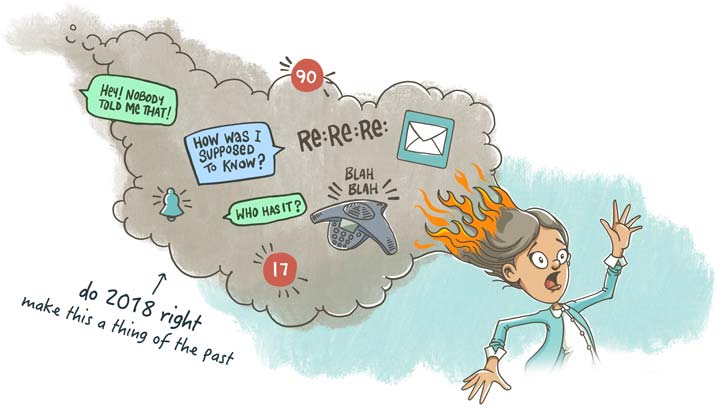 90
HEY! NOBODY
TOLD ME THAT!
HOW WAS I
SUPPOSED
TO KNOW?
RE:RE:RE:
BLAH
BLAH
WHO HAS IT?
17
do 2018 right
make this a thing of the past